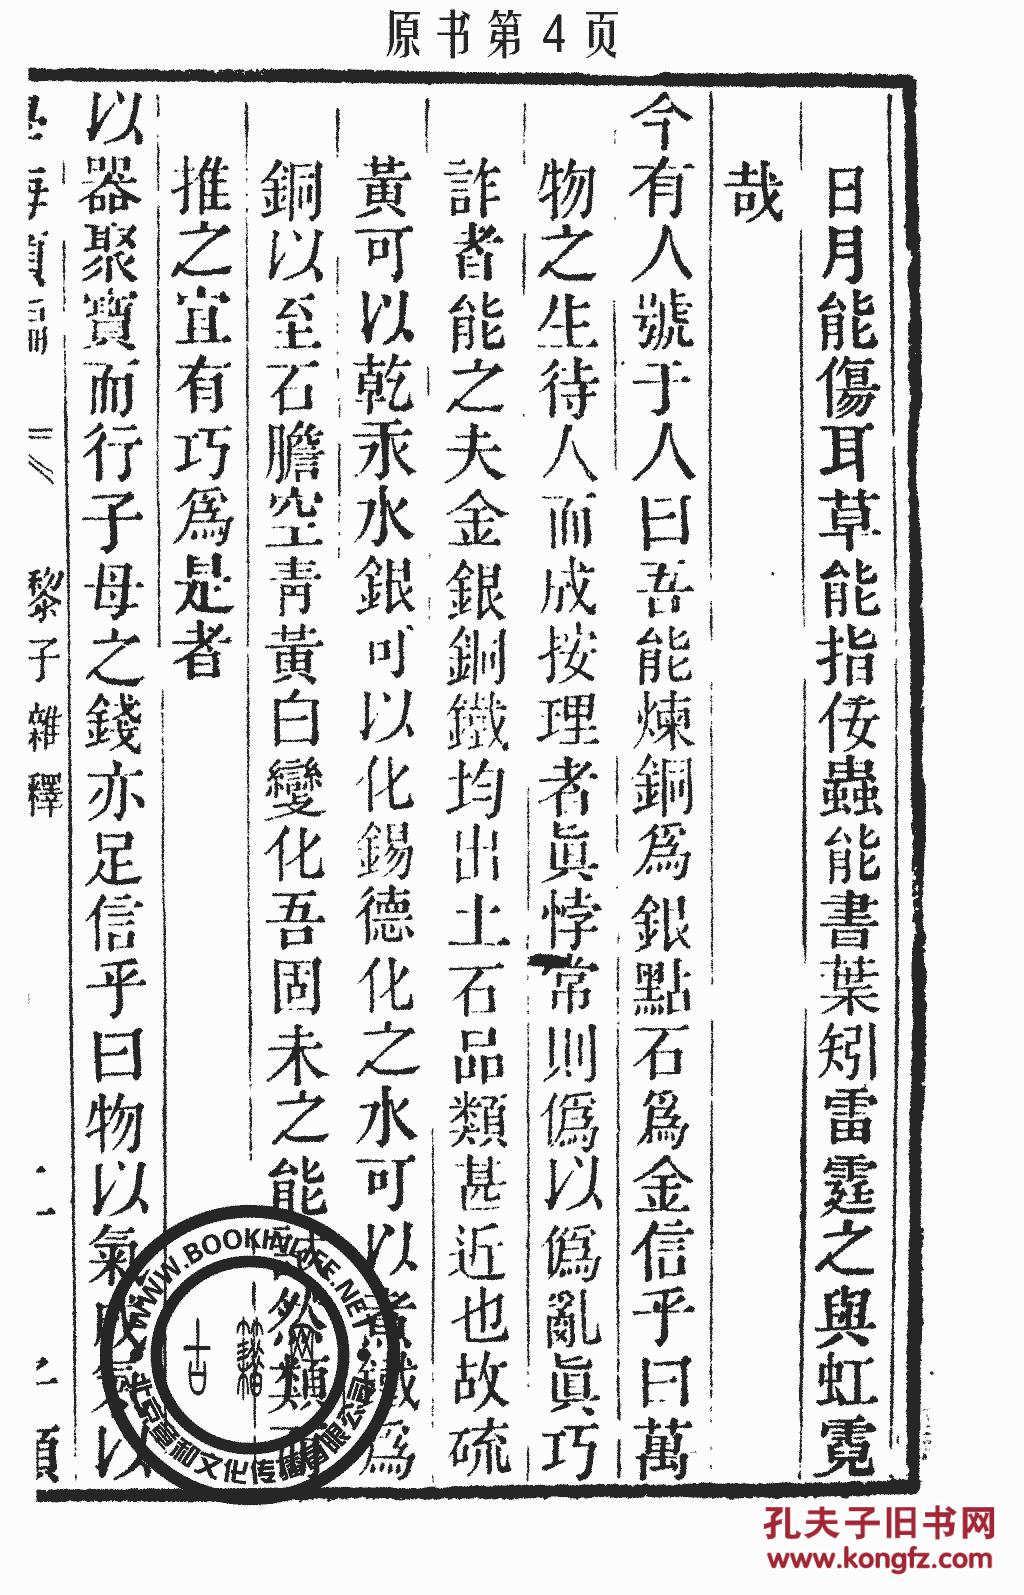 原书第4页
日月能傷耳草能指佞蟲能書葉矧雷霆之與虹霓
哉
今有人號于人曰吾能煉銅爲銀點石爲金信乎曰萬
物之生待人而成按理者眞悖常則僞以僞亂眞巧
詐者能之夫金銀銅鐵均出土石品類甚近也故硫
黃可以乾汞水銀可以化錫德化之水可以煮鐵爲
銅以至石膽空青黃白變化吾固未之能
然類
推之宜有巧爲是者
以器聚寶而行子母之錢亦足信乎曰物以氣成氣以
學海類編
黎子雜釋
WWW.BOOKINLIFE.NET
北京章和文化传播有限公司
孔夫子旧书网
www.kongfz.com